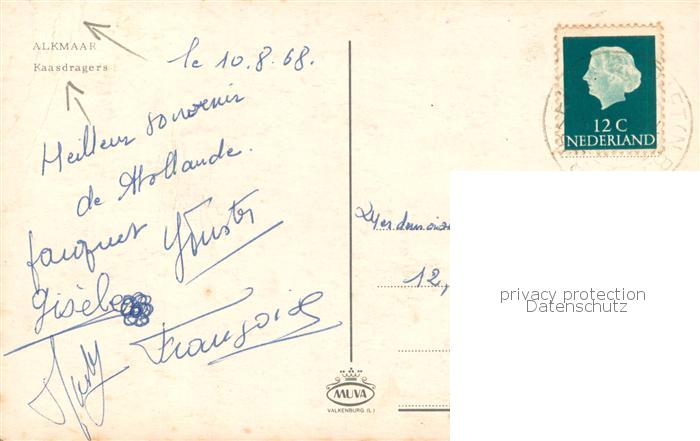 ALKMAAR
Kaasdragers
le 10.8.68.
Meilleur souvenir
de Hollande.
Jacques
Gisèle
Françoise
12 C
NEDERLAND
12,
privacy protection
Datenschutz
MUVA
VALKENBURG (L.)